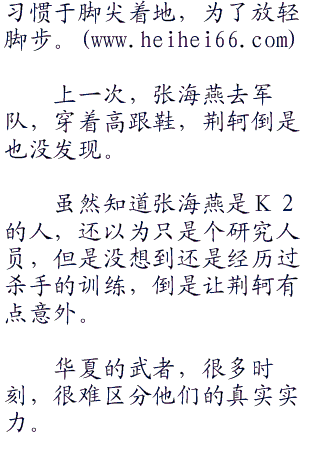 习惯于脚尖着地，为了放轻
脚步。(www.heihei66.com)
上一次，张海燕去军
队，穿着高跟鞋，荆轲倒是
也没发现。
虽然知道张海燕是K 2
的人，还以为只是个研究人
员，但是没想到还是经历过
杀手的训练，倒是让荆轲有
点意外。
华夏的武者，很多时
刻，很难区分他们的真实实
力。